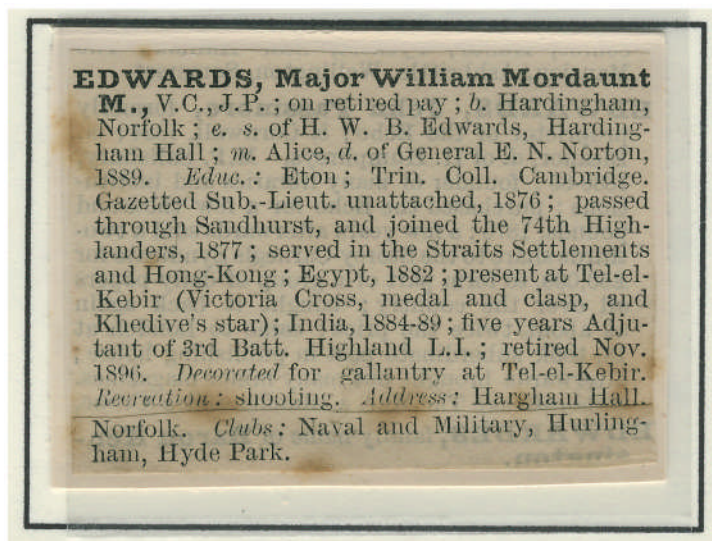 EDWARDS, Major William Mordaunt
M., V.C., J.P. ; on retired pay ; b. Hardingham,
Norfolk ; e. s. of H. W. B. Edwards, Harding-
ham Hall ; m. Alice, d. of General E. N. Norton,
1889. Educ. : Eton ; Trin. Coll. Cambridge.
Gazetted Sub.-Lieut. unattached, 1876 ; passed
through Sandhurst, and joined the 74th High-
landers, 1877 ; served in the Straits Settlements
and Hong-Kong ; Egypt, 1882 ; present at Tel-el-
Kebir (Victoria Cross, medal and clasp, and
Khedive's star) ; India, 1884-89 ; five years Adju-
tant of 3rd Batt. Highland L.I. ; retired Nov.
1896. Decorated for gallantry at Tel-el-Kebir.
Recreation : shooting. Address : Hargham Hall.
Norfolk. Clubs : Naval and Military, Hurling-
ham, Hyde Park.